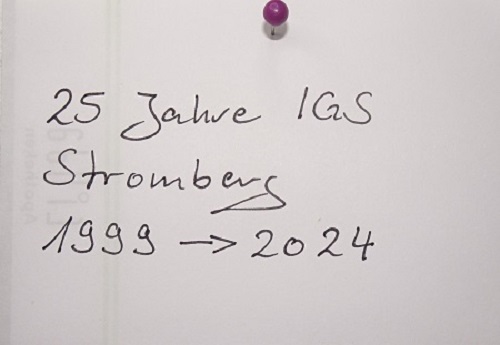 25 Jahre IGS
Stromberg
1999 → 2024